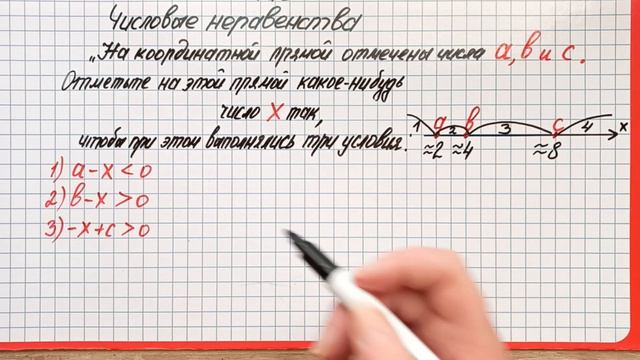 Числовые неравенства
„На координатной прямой отмечены числа a, b и c.
Отметьте на этой прямой какое-нибудь
число X так,
чтобы при этом выполнялись три условия:
1) a-x<0
2) b-x>0
3) -x+c>0
a b c
1 2 3 4 x
≈2 ≈4 ≈8